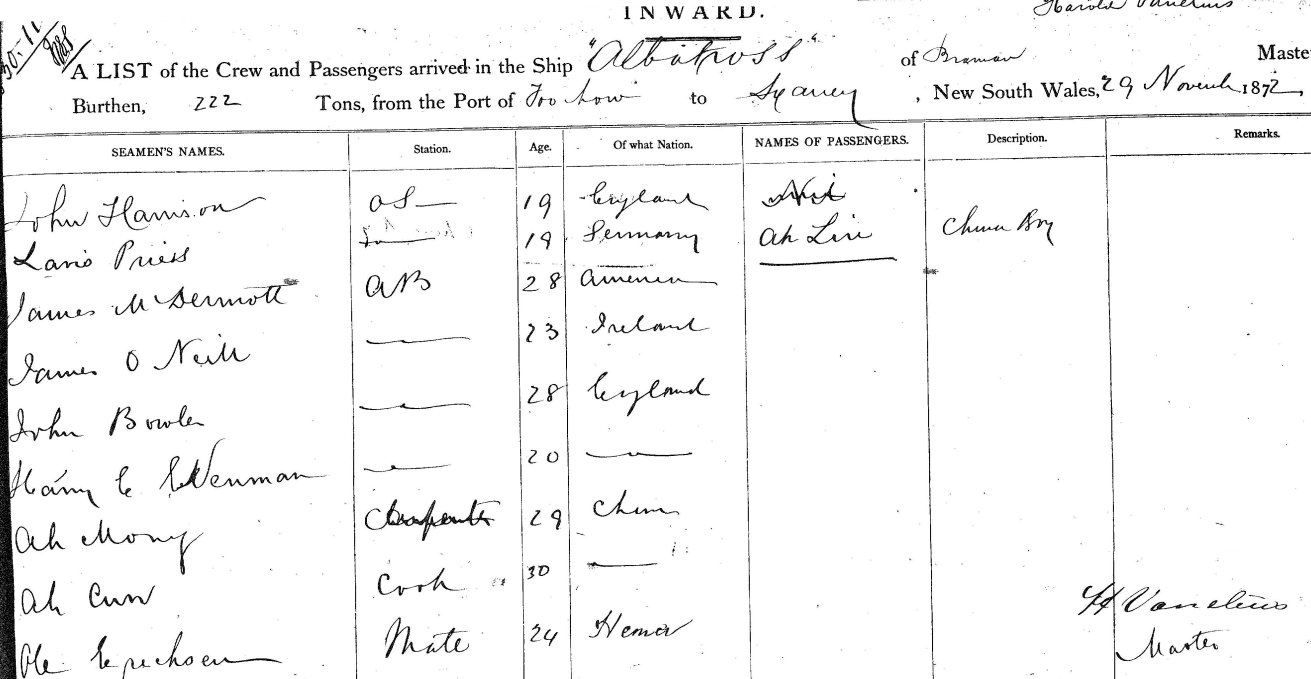 INWARD.
30-11
A LIST of the Crew and Passengers arrived in the Ship "Albatross" of Master
Burthen, 222 Tons, from the Port of Foo chow to Sydney, New South Wales, 29 November 1872,
SEAMEN'S NAMES. Station. Age. Of what Nation. NAMES OF PASSENGERS. Description. Remarks.
John Harrison OS 19 England Nil
Priess 19 Germany Ah Lin China Boy
James McDermott AB 28 America
James O Neill — 23 Ireland
John Bowler — 28 England
Harry E — 20 —
Ah Mong Carpenter 29 China
Ah Cun Cook 30 —
H Vanelius
Ole Erichsen Mate 24
Master